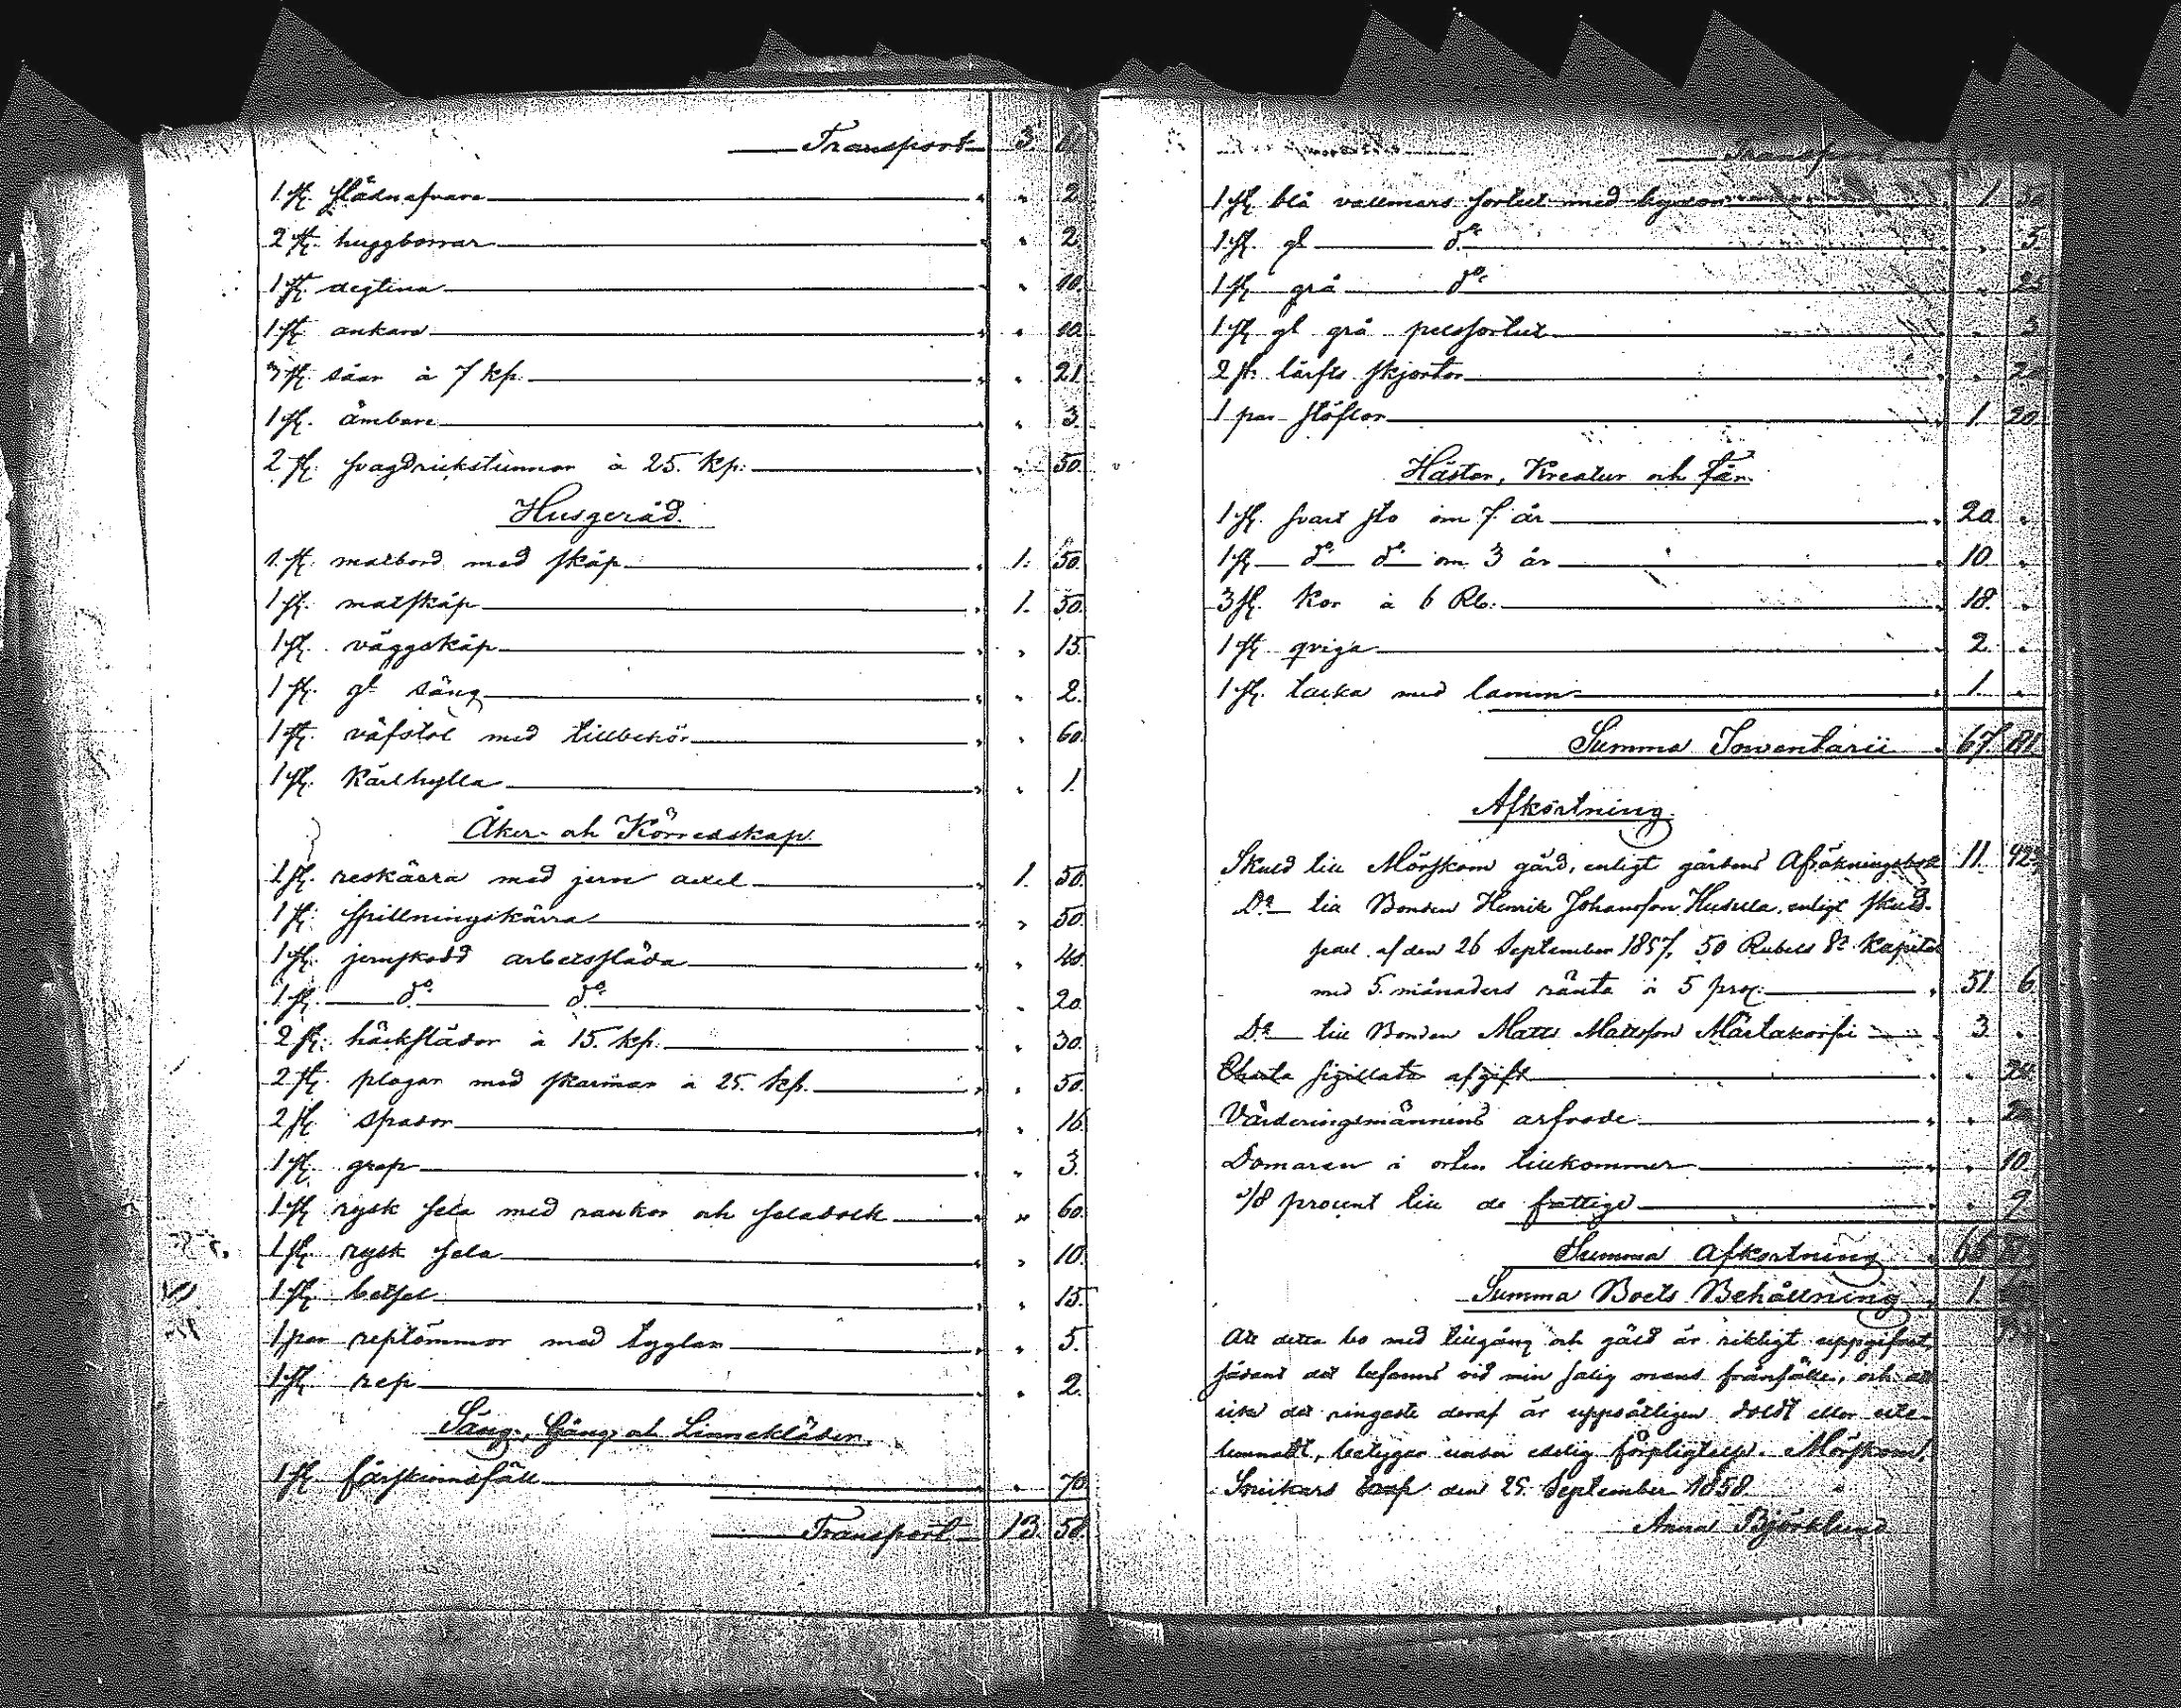 Transport 3. 61.
1 st. slädnafvare " 2.
2 st. huggborrar " 2.
1 st. degtina " 10.
1 st. ankare " 10.
3 st. såar à 7 kp. " 21.
1 st. ämbare " 3.
2 st. svagdrickstunnor à 25. kp: " 50.
Husgeråd.
1 st. matbord med skåp 1. 50.
1 st. matskåp 1. 50.
1 st. väggskåp " 15.
1 st. gl säng " 2.
1 st. väfstol med tillbehör " 60.
1 st. kärlhylla " 1.
Åker- och Körredskap.
1 st. reskärra med jern axel 1. 50.
1 st. spillningskärra " 50.
1 st. jernskodd arbetssläda " 40.
1 st. do do " 20.
2 st. häckslädor à 15. kp. " 30.
2 st. plogar med skarmar à 25. kp. " 50.
2 st. spador " 16.
1 st. grep " 3.
1 st. rysk sela med rankor och seladock " 60.
1 st. rysk sela " 10.
1 st. betsel " 15.
1 par reptömmor med tyglar " 5.
1 st. rep " 2.
Säng-, Gång- och Linnekläder.
1 st. fårskinnsfäll " 70.
Transport 13. 50.
Transport
1 st. blå vallmars sortut med byxor 1. 50
1 st. gl do " 5.
1 st. grå do " 25
1 st. gl grå pelssortut " 3
2 st. lärfts skjortor " 20
1 par stöflor 1. 20.
Hästar, Kreatur och Får.
1 st. svart sto om 7. år 20. "
1 st. do do om 3 år 10. "
3 st. kor à 6 Rb: 18. "
1 st. qviga 2. "
1 st. tacka med lamm 1. "
Summa Inventarii 67. 81.
Afkortning.
Skuld till Mörskom gård, enligt gårdens Afräkningsbok 11. 42
Do till Bonden Henrik Johansson Huddla, enligt skuld-
sedel af den 26 September 1857, 50 Rubels Sr Kapital
med 5. månaders ränta à 5 proc. 51. 6.
Do till Bonden Matts Mattsson Märtakorpi 3. "
Charta sigillata afgift "
Värderingsmännens arfvode " 20
Domaren i orten tillkommer " 10
1/8 procent till de fattige " 9
Summa Afkortning
Summa Boets Behållning 1.
Att detta bo med tillgång och gäld är riktigt uppgifvet,
sådant det befanns vid min salig mans frånfälle, och att
icke det ringaste deraf är uppsåtligen doldt eller ute-
lemnadt, betygar under edelig förpligtelse. Mörskom,
torp den 25. September 1858.
Anna Björklund